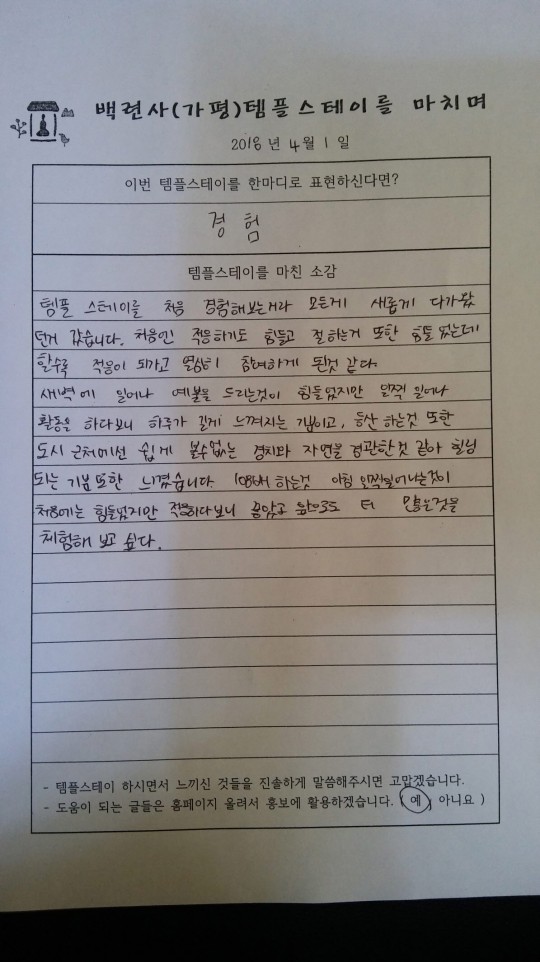 백련사(가평)템플스테이를 마치며
2018년 4월 1일
이번 템플스테이를 한마디로 표현하신다면?
경험
템플스테이를 마친 소감
템플 스테이를 처음 경험해보는거라 모든게 새롭게 다가왔
던거 같습니다. 처음엔 적응하기도 힘들고 절하는거 또한 힘들었는데
할수록 적응이 되가고 열심히 참여하게 된것 같다.
새벽에 일어나 예불을 드리는것이 힘들었지만 일찍 일어나
활동을 하다보니 하루가 길게 느껴지는 기분이고, 등산 하는것 또한
도시 근처에선 쉽게 볼수없는 경치와 자연을 경관한것 같아 힐링
되는 기분 또한 느꼈습니다. 108배 하는것 아침 일찍일어나는것이
처음에는 힘들었지만 적응하다보니 좋았고 앞으로도 더 많은것을
체험해 보고 싶다.
- 템플스테이 하시면서 느끼신 것들을 진솔하게 말씀해주시면 고맙겠습니다.
- 도움이 되는 글들은 홈페이지 올려서 홍보에 활용하겠습니다. ( 예, 아니요 )